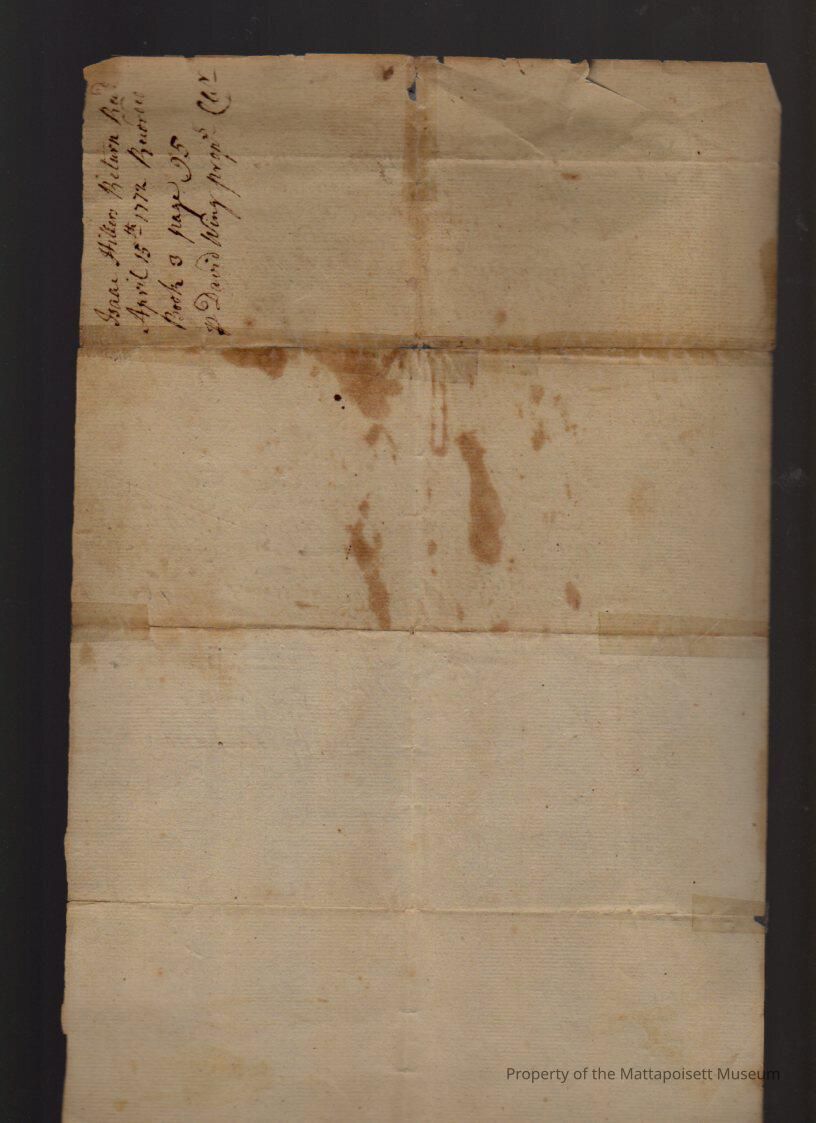 Isaac Hillers Return Recd
April 15th 1772 Recorded
Book 3 page 95
P David Wing proprs Clr
Property of the Mattapoisett Museum